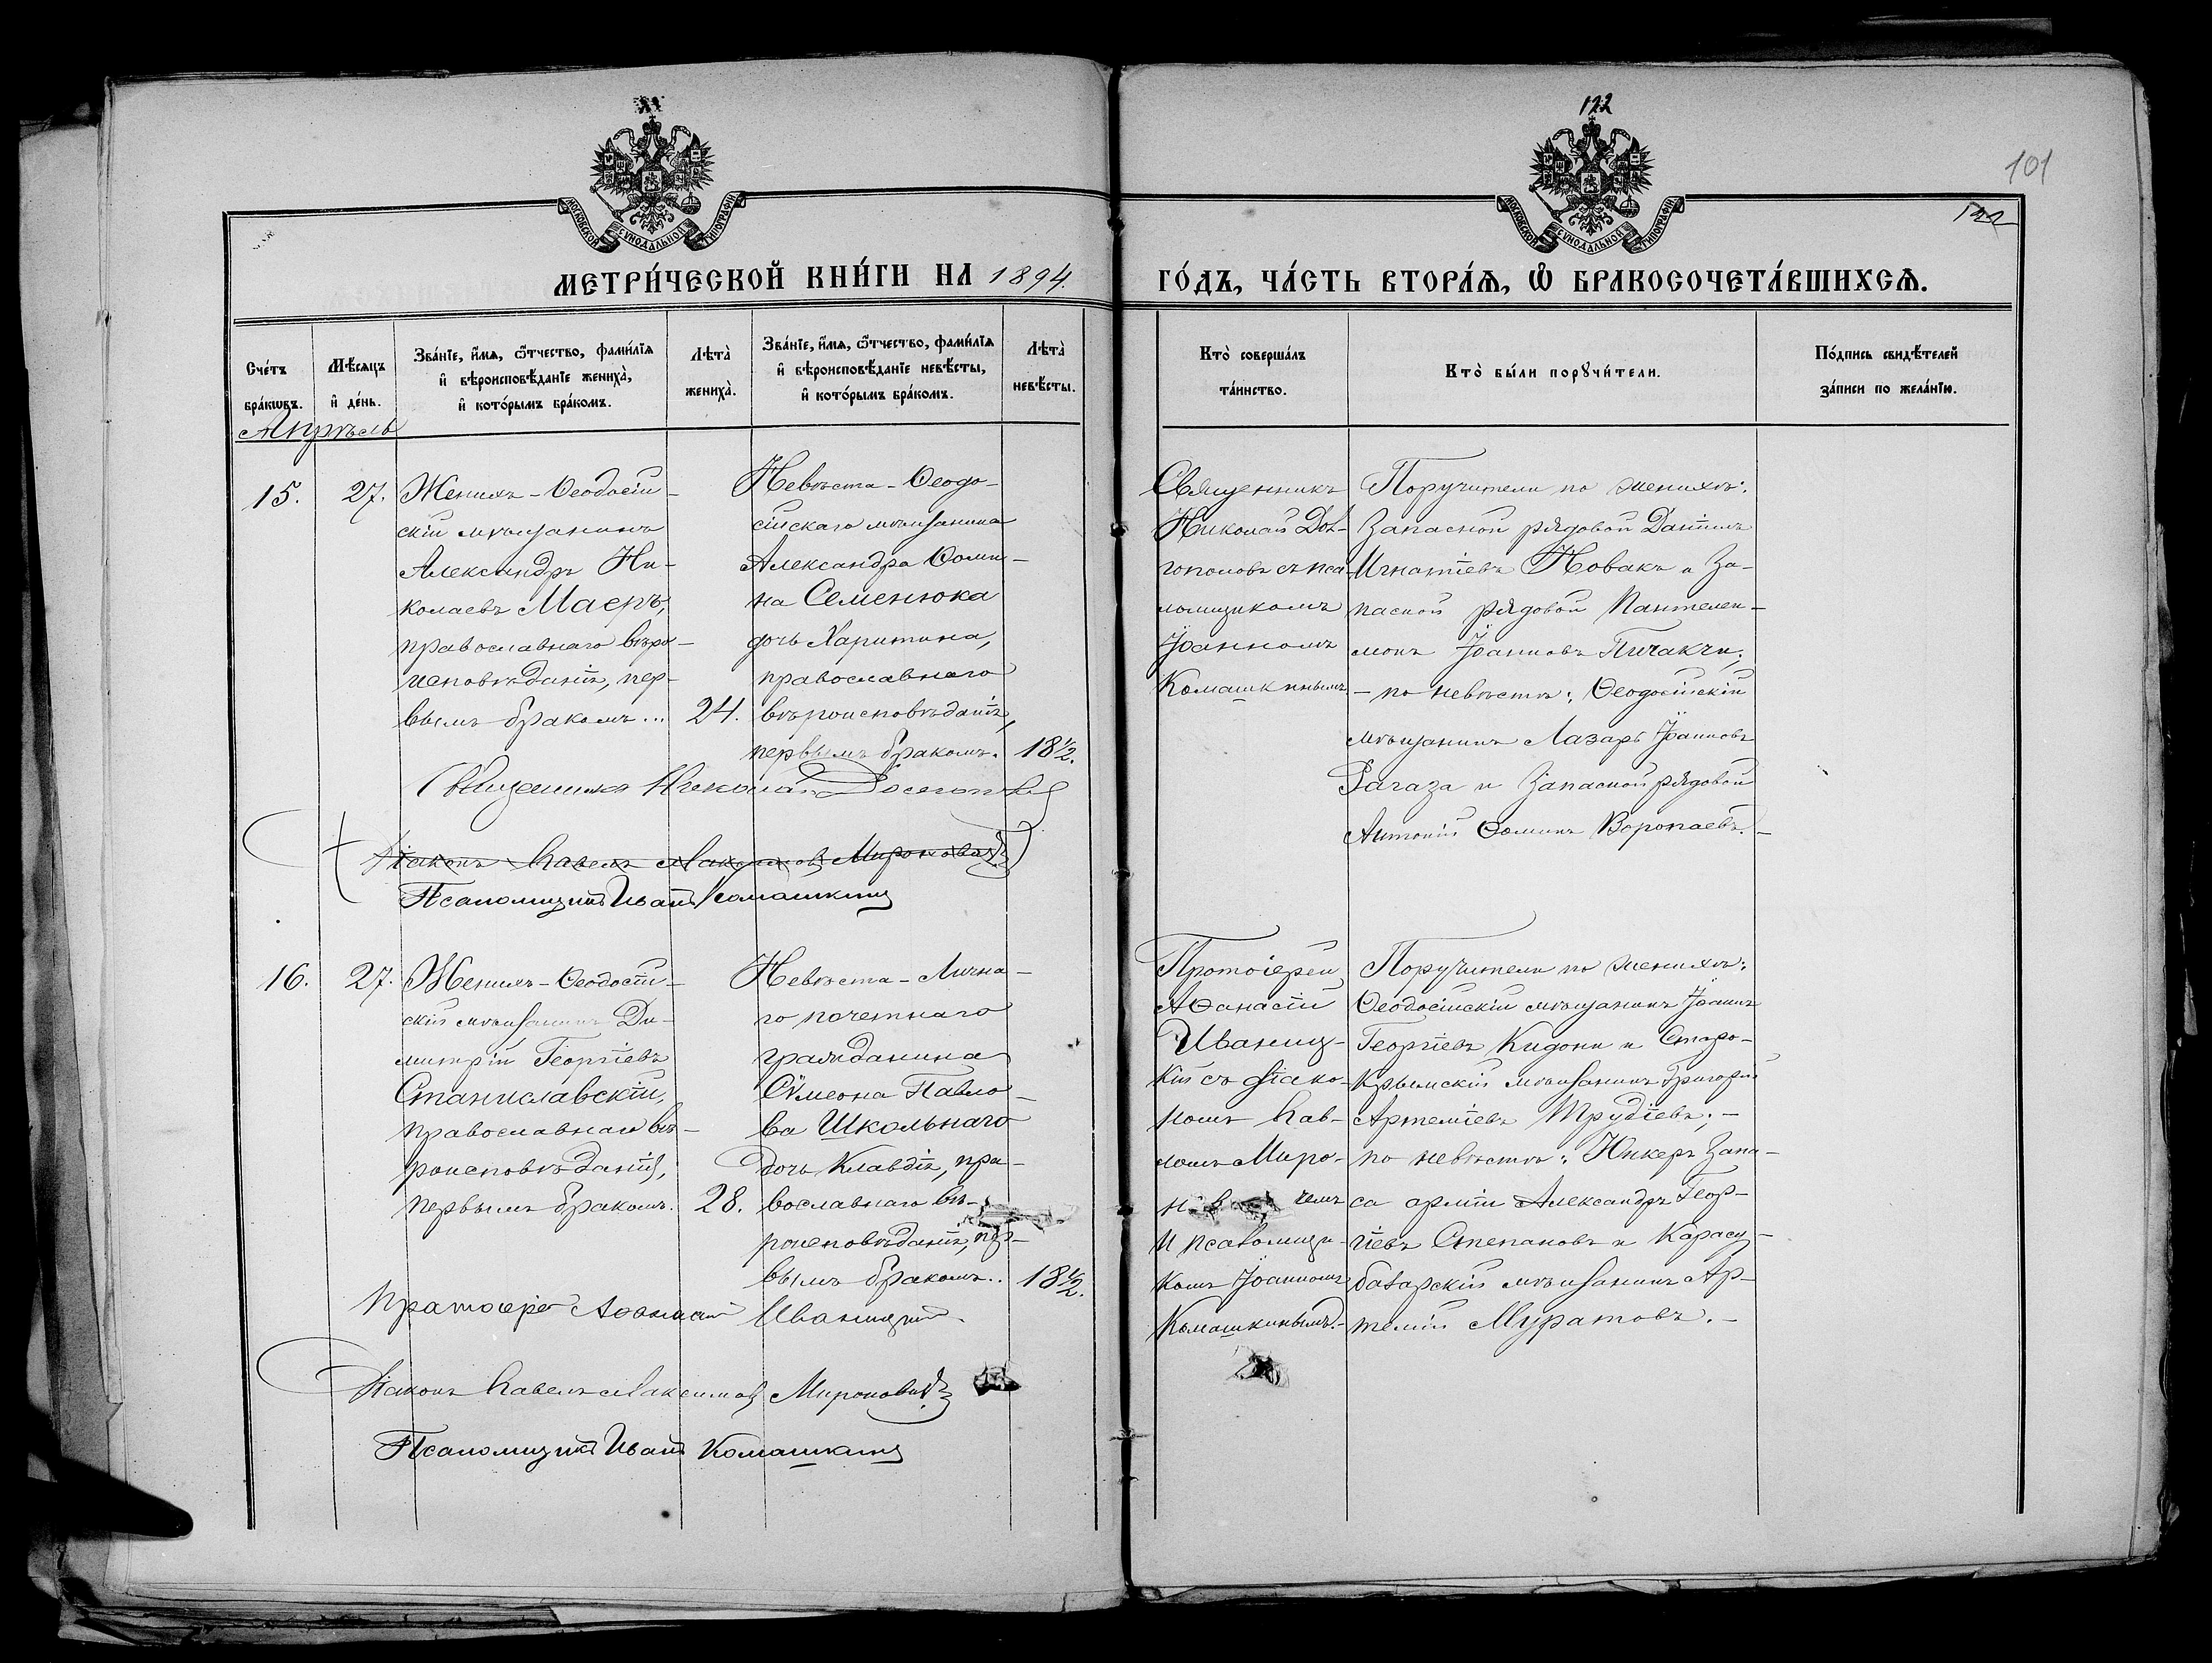 122
101
122
МОСКОВСКОЙ СУНОДАЛЬНОЙ ТИПОГРАФІИ
МОСКОВСКОЙ СУНОДАЛЬНОЙ ТИПОГРАФІИ
МЕТРИ́ЧЕСКОЙ КНИ́ГИ НА 1894.
ГО́ДЪ, ЧА́СТЬ ВТОРА́Ѧ, Ѡ҆ БРАКОСОЧЕТА́ВШИХСѦ.
Сче́тъ бра́кѡвъ.
Мѣ́сяцъ и҆ де́нь.
Зва́нїе, и҆́мѧ, ѻ҆́тчество, фами́лїѧ и҆ вѣроисповѣ́данїе жениха̀, и҆ кото́рымъ бра́комъ.
Лѣта̀ жениха̀.
Зва́нїе, и҆́мѧ, ѻ҆́тчество, фами́лїѧ и҆ вѣроисповѣ́данїе невѣ́сты, и҆ кото́рымъ бра́комъ.
Лѣта̀ невѣ́сты.
Кто̀ соверша́лъ та́инство.
Кто̀ бы́ли порꙋчи́тели.
По́дпись свидѣ́телей за́писи по жела́нїю.
Апрѣль
15.
27.
Женихъ - Ѳеодосій-
скій мѣщанинъ
Александръ Ни-
колаевъ Маеръ,
православнаго вѣро-
исповѣданія, пер-
вымъ бракомъ...
24.
Невѣста - Ѳеодо-
сійскаго мѣщанина
Александра Ѳоми-
на Семенюка
дочь Харитина,
православнаго
вѣроисповѣданія,
первымъ бракомъ.
18½.
Священникъ
Николай Дол-
гополовъ съ пса-
ломщикомъ
Іоанномъ
Комашкинымъ
Поручители по женихѣ:
Запасной рядовой Даніилъ
Игнатіевъ Новакъ и За-
пасной рядовой Пантелеи-
монъ Іоанновъ Пичакчи;
- по невѣстѣ: Ѳеодосійскій
мѣщанинъ Лазарь Іоанновъ
Рагаза и Запасной рядовой
Антоній Ѳоминъ Воропаевъ. -
Священникъ Николай Долгополовъ
Діаконъ Павелъ Максимовъ Мироновичъ
Псаломщикъ Иванъ Комашкинъ
16.
27.
Женихъ - Ѳеодосій-
скій мѣщанинъ Ди-
митрій Георгіевъ
Станиславскій,
православнаго вѣ-
роисповѣданія,
первымъ бракомъ.
28.
Невѣста - Лична-
го почетнаго
гражданина
Сѵмеона Павло-
ва Школьнаго
дочь Клавдія, пра-
вославнаго вѣ-
роисповѣданія, пер-
вымъ бракомъ..
18½.
Протоіерей
Аѳанасій
Иваниц-
кій съ діако-
номъ Пав-
ломъ Миро-
н в чемъ
и псаломщи-
комъ Іоанномъ
Комашкинымъ. -
Поручители по женихѣ:
Ѳеодосійскій мѣщанинъ Іоаннъ
Георгіевъ Кидони и Старо-
Крымскій мѣщанинъ Григорій
Артеміевъ Трудіевъ; -
по невѣстѣ: Юнкеръ Запа-
са арміи Александръ Геор-
гіевъ Степановъ и Карасу-
базарскій мѣщанинъ Ар-
темій Муратовъ. -
Протоіерей Аѳанасій Иваницкій.
Діаконъ Павелъ Максимовъ Мироновичъ
Псаломщикъ Иванъ Комашкинъ